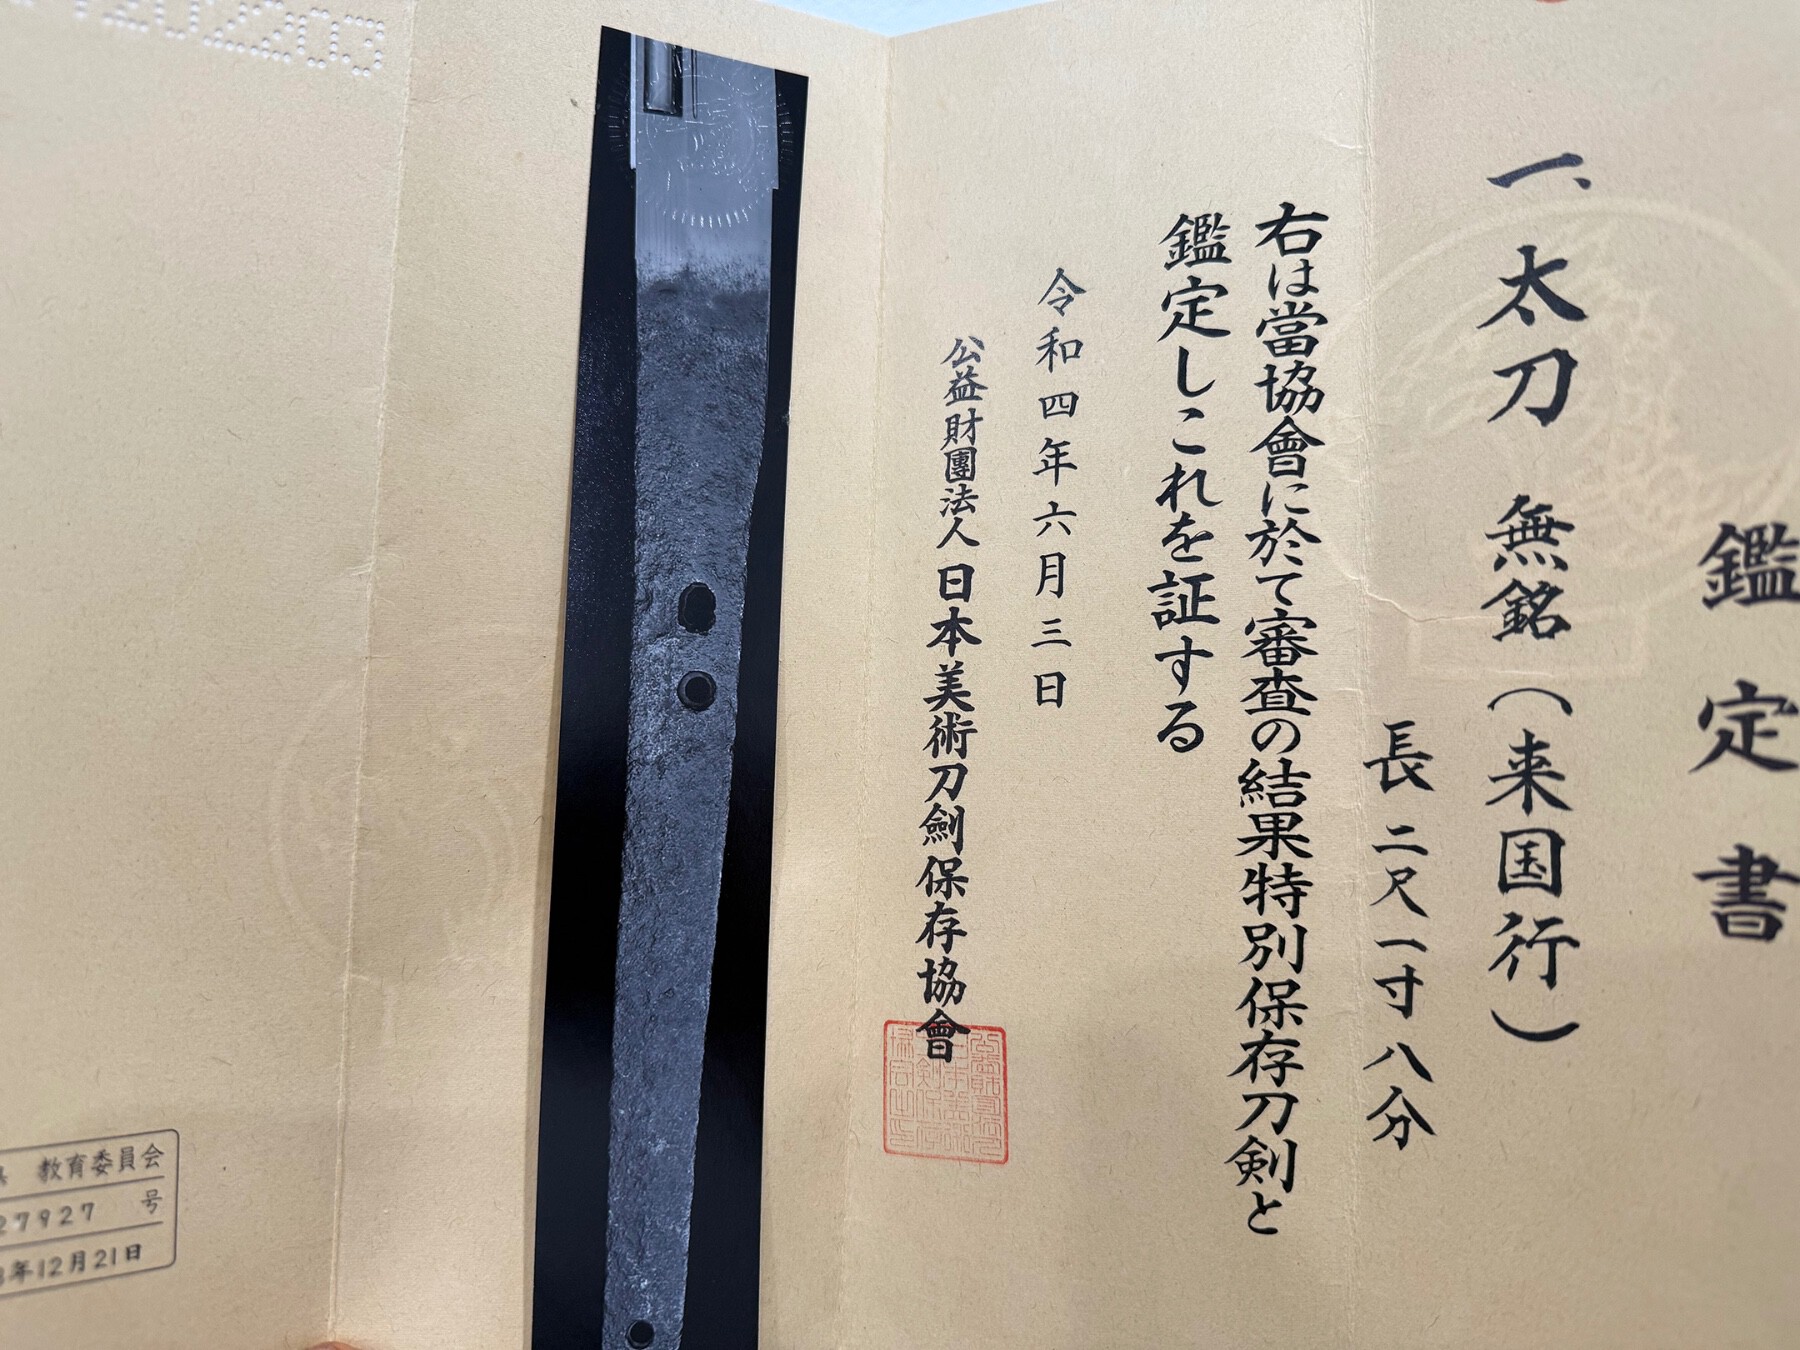 鑑定書
一、太刀 無銘(来国行)
長二尺一寸八分
右は當協會に於て審査の結果特別保存刀剣と
鑑定しこれを証する
令和四年六月三日
公益財團法人日本美術刀劍保存協會
教育委員会
27927 号
年12月21日
202203